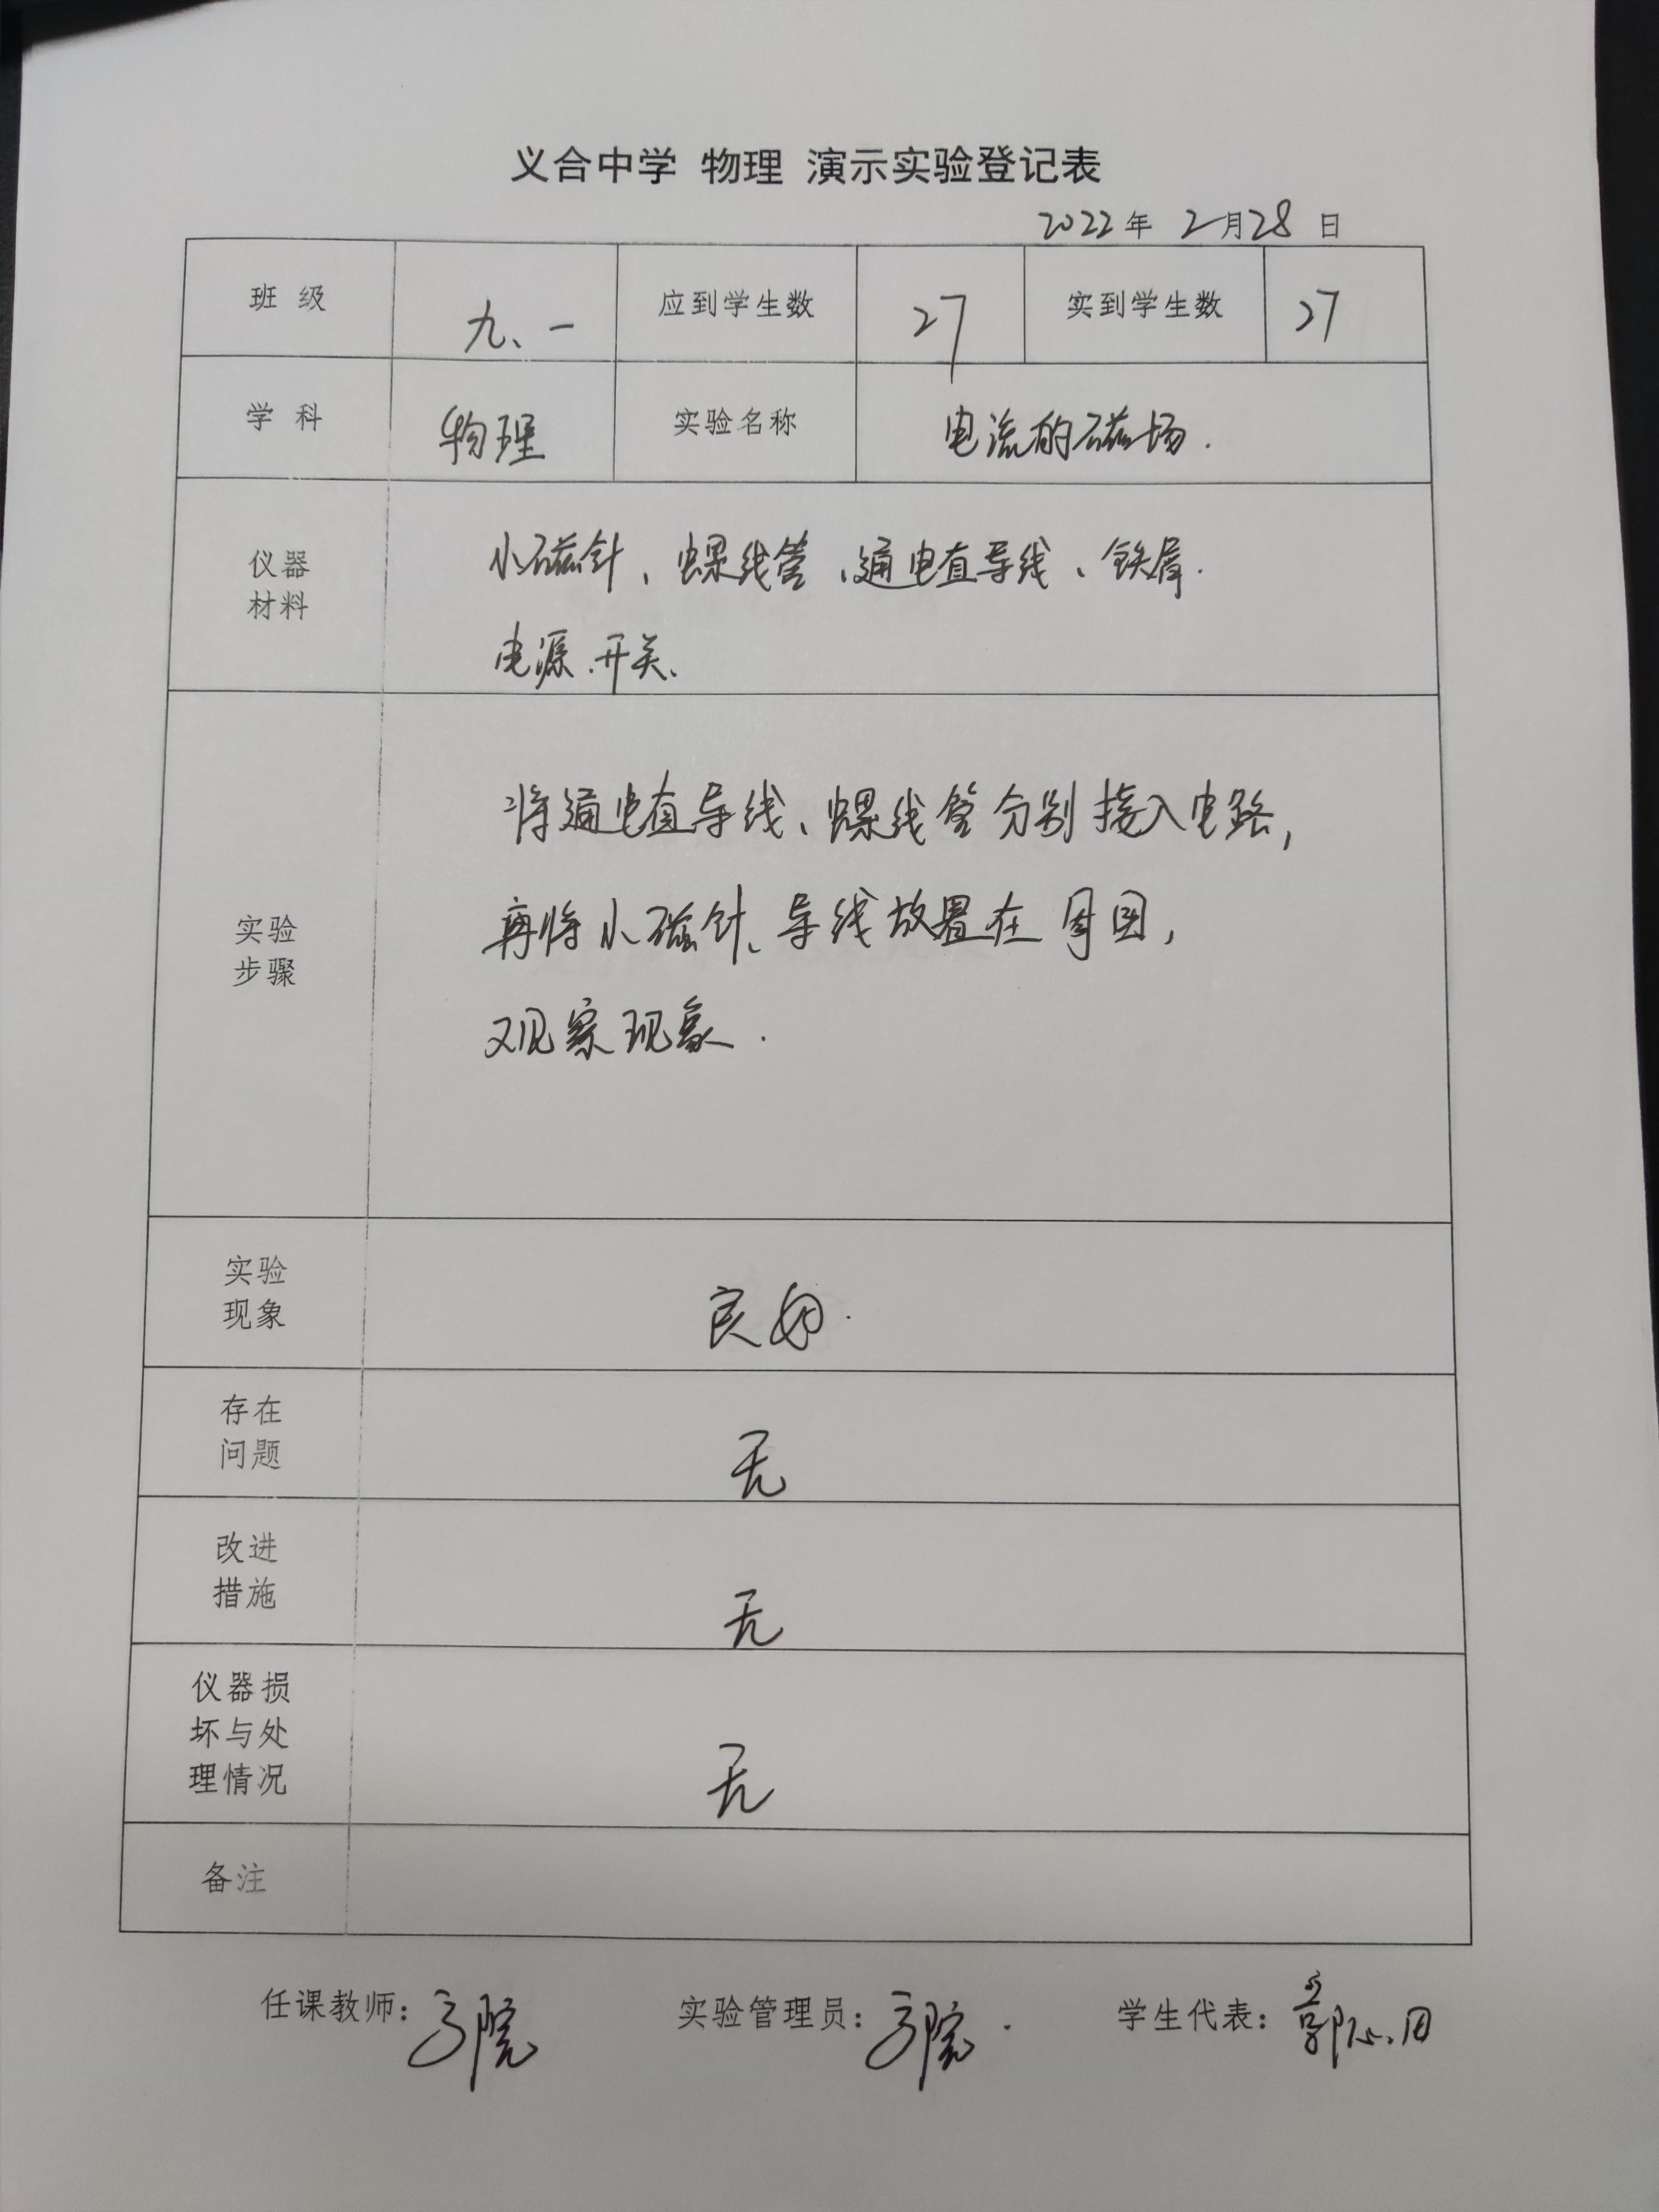 义合中学 物理 演示实验登记表
2022年 2月28日
班 级 九、一 应到学生数 27 实到学生数 27
学 科 物理 实验名称 电流的磁场.
仪器
材料
小磁针、螺线管、通电直导线、铁屑.
电源、开关、
实验
步骤
将通电直导线、螺线管分别接入电路,
再将小磁针、导线放置在周围,
观察现象.
实验
现象
良好.
存在
问题
无
改进
措施
无
仪器损
坏与处
理情况
无
备注
任课教师: 实验管理员: 学生代表: 郭